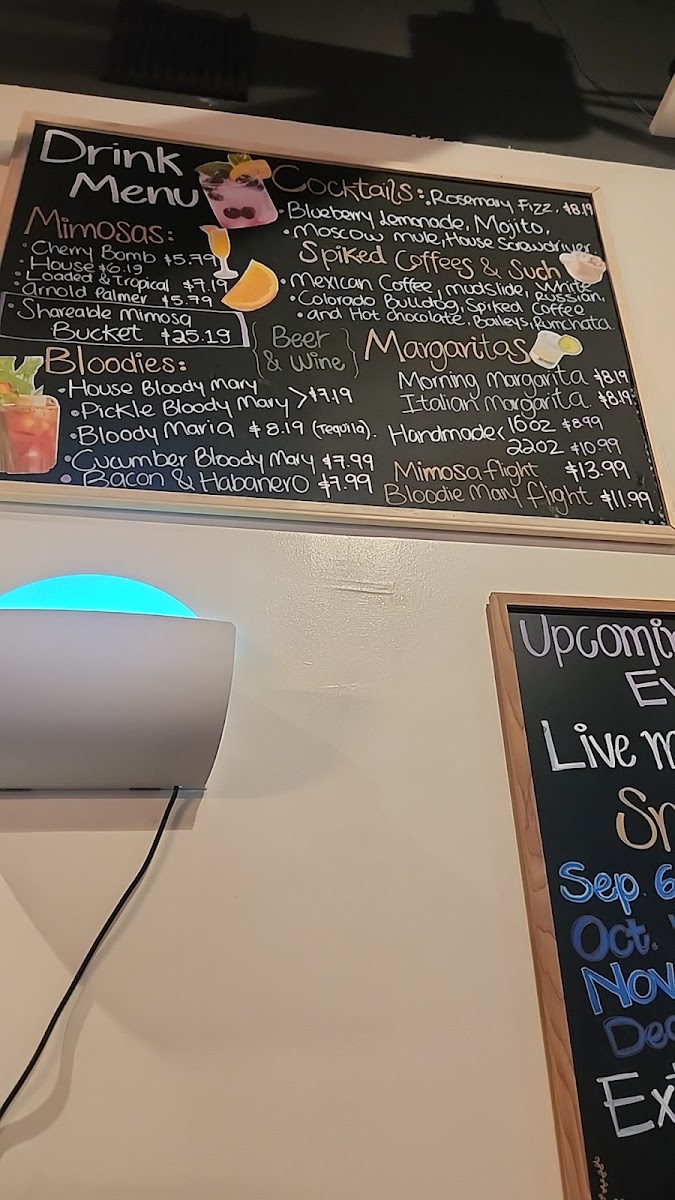 Drink
Menu
Mimosas:
• Cherry Bomb $5.79
• House $6.19
• Loaded & Tropical $7.19
• Arnold Palmer $5.79
• Shareable Mimosa
Bucket $25.19
Bloodies:
• House Bloody Mary
• Pickle Bloody Mary > $7.19
• Bloody Maria $8.19 (Tequila).
• Cucumber Bloody Mary $7.99
• Bacon & Habanero $7.99
{Beer
& Wine}
Cocktails: • Rosemary Fizz, $8.19
• Blueberry Lemonade, Mojito,
• Moscow mule, House Screwdriver
Spiked Coffees & Such
• Mexican Coffee, mudslide, White
• Colorado Bulldog, Spiked Coffee Russian,
• and Hot chocolate, Baileys, Rumchata
Margaritas
Morning Margarita $8.19
Italian Margarita. $8.19
Handmade < 16oz $8.99
22oz $10.99
Mimosa flight $13.99
Bloodie Mary flight $11.99
Live
Sep. 6
Oct.
Nov